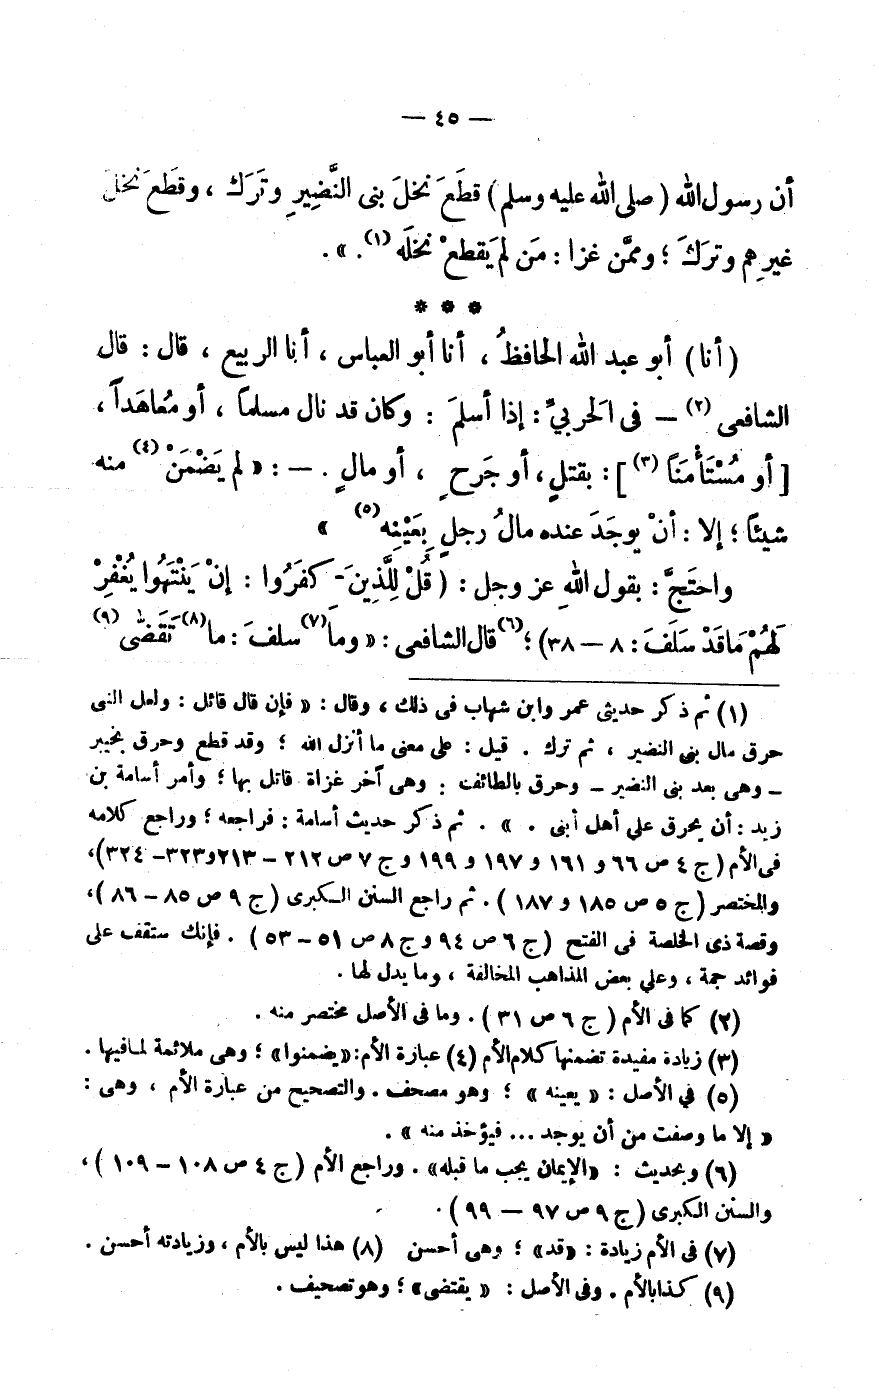 — ٤٥ —
أن رسول الله ( صلى الله عليه وسلم ) قطَعَ نخلَ بنى النَّضِيرِ وتَرَك ، وقطَع نخلَ
غيرِهم وتَركَ ؛ وممَّن غزا : مَن لم يَقطعْ نخلَه (١) . » .
* * *
( أنا ) أبو عبد الله الحافظُ ، أنا أبو العباس ، أنا الربيع ، قال : قال
الشافعى (٢) — فى الحَربىِّ : إذا أسلمَ : وكان قد نال مسلماً ، أو مُعاهَداً ،
[ أو مُسْتَأْمَناً (٣) ] : بقتلٍ ، أو جَرحٍ ، أو مالٍ . — : « لم يَضْمَنْ (٤) منه
شيئاً ؛ إلا : أنْ يوجَدَ عنده مالُ رجلٍ بِعَيْنِه (٥) »
واحتَجَّ : بقول اللهِ عز وجل : ( قُلْ لِلَّذِينَ كَفَرُوا : إنْ يَنْتَهُوا يُغْفَرْ
لَهُمْ مَا قَدْ سَلَفَ : ٨ — ٣٨ ) ؛ (٦) قال الشافعى : « وما (٧) سلفَ : ما (٨) تَقَضَّى (٩)
(١) ثم ذكر حديثى عمر وابن شهاب فى ذلك ، وقال : « فإن قال قائل : ولعل النبى
حرق مال بنى النضير ، ثم ترك . قيل : على معنى ما أنزل الله ؛ وقد قطع وحرق بخيبر
– وهى بعد بنى النضير – وحرق بالطائف : وهى آخر غزاة قاتل بها ؛ وأمر أسامة بن
زيد : أن يحرق على أهل أبنى . » . ثم ذكر حديث أسامة : فراجعه ؛ وراجع كلامه
فى الأم ( ج ٤ ص ٦٦ و ١٦١ و ١٩٧ و ١٩٩ و ج ٧ ص ٢١٢ – ٢١٣ و ٣٢٣– ٣٢٤ ) ،
والمختصر ( ج ٥ ص ١٨٥ و ١٨٧ ) . ثم راجع السنن الكبرى ( ج ٩ ص ٨٥ – ٨٦ ) ،
وقصة ذى الخلصة فى الفتح ( ج ٦ ص ٩٤ و ج ٨ ص ٥١ – ٥٣ ) . فإنك ستقف على
فوائد جمة ، وعلى بعض المذاهب المخالفة ، وما يدل لها .
(٢) كما فى الأم ( ج ٦ ص ٣١ ) . وما فى الأصل مختصر منه .
(٣) زيادة مفيدة تضمنها كلام الأم (٤) عبارة الأم : «يضمنوا» ؛ وهى ملائمة لما فيها .
(٥) فى الأصل : « يعينه » ؛ وهو مصحف . والتصحيح من عبارة الأم ، وهى :
« إلا ما وصفت من أن يوجد ... فيؤخذ منه » .
(٦) وبحديث : «الإيمان يجب ما قبله» . وراجع الأم ( ج ٤ ص ١٠٨ – ١٠٩ ) ،
والسنن الكبرى ( ج ٩ ص ٩٧ — ٩٩ ) .
(٧) فى الأم زيادة : «قد» ؛ وهى أحسن (٨) هذا ليس بالأم ، وزيادته أحسن .
(٩) كذا بالأم . وفى الأصل : « يقتضى » ؛ وهو تصحيف .